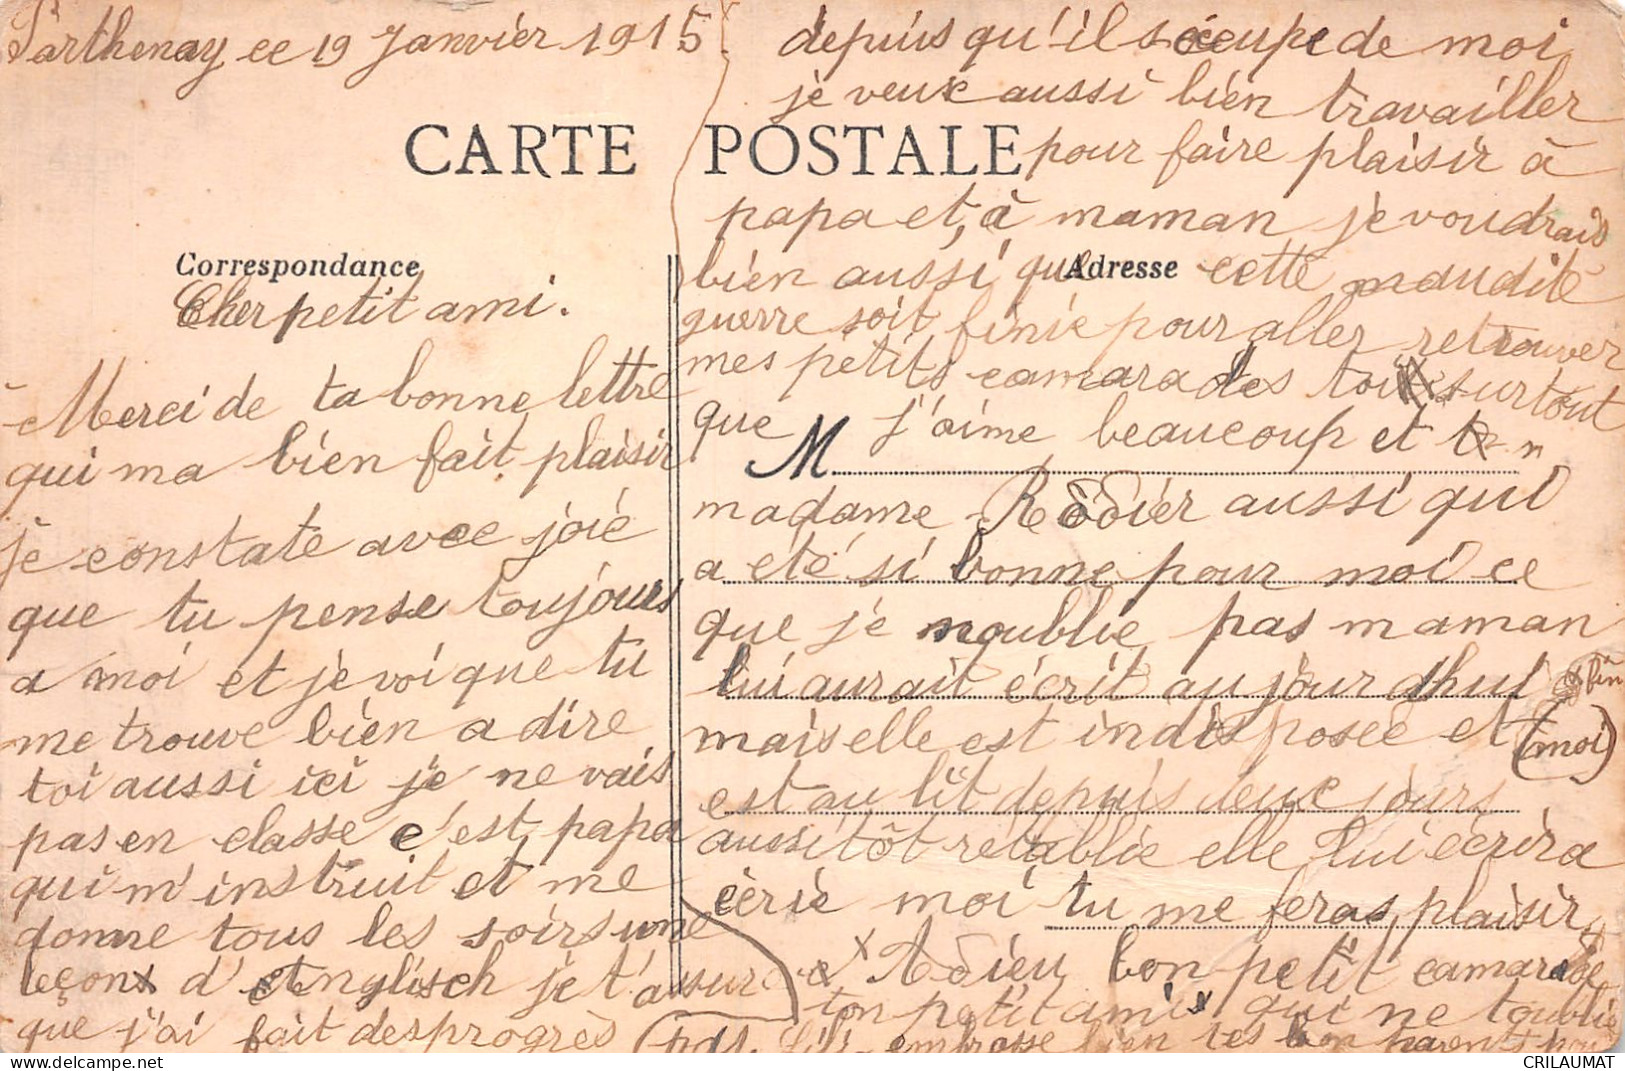 Parthenay ce 19 Janvier 1915.
CARTE POSTALE
Correspondance
Cher petit ami.
Merci de ta bonne lettre
qui ma bien fait plaisir
je constate avec joie
que tu pense toujours
a moi et je voi que tu
me trouve bien a dire
toi aussi ici je ne vais
pas en classe c'est papa
qui m'instruit et me
donne tous les soirs une
leçon d'Englisch je t'assure
que j'ai fait des progrès
depuis qu'il s'occupe de moi
je veux aussi bien travailler
pour faire plaisir à
papa et, à maman je voudrais
bien aussi que cette maudite
Adresse
guerre soit finie pour aller retrouver
mes petits camarades toi surtout
que j'aime beaucoup et
M
madame Rodier aussi qui
a été si bonne pour moi ce
que je noublie pas maman
lui aurait écrit aujourdhui
mais elle est indisposée et
est au lit depuis deux jours
aussitôt retablie elle lui écrira
écrie moi tu me feras plaisir
x fin
(moi)
Adieu bon petit camarade
ton petit ami qui ne toublie
pas. embrasse bien tes bon parents pour
CRILAUMAT